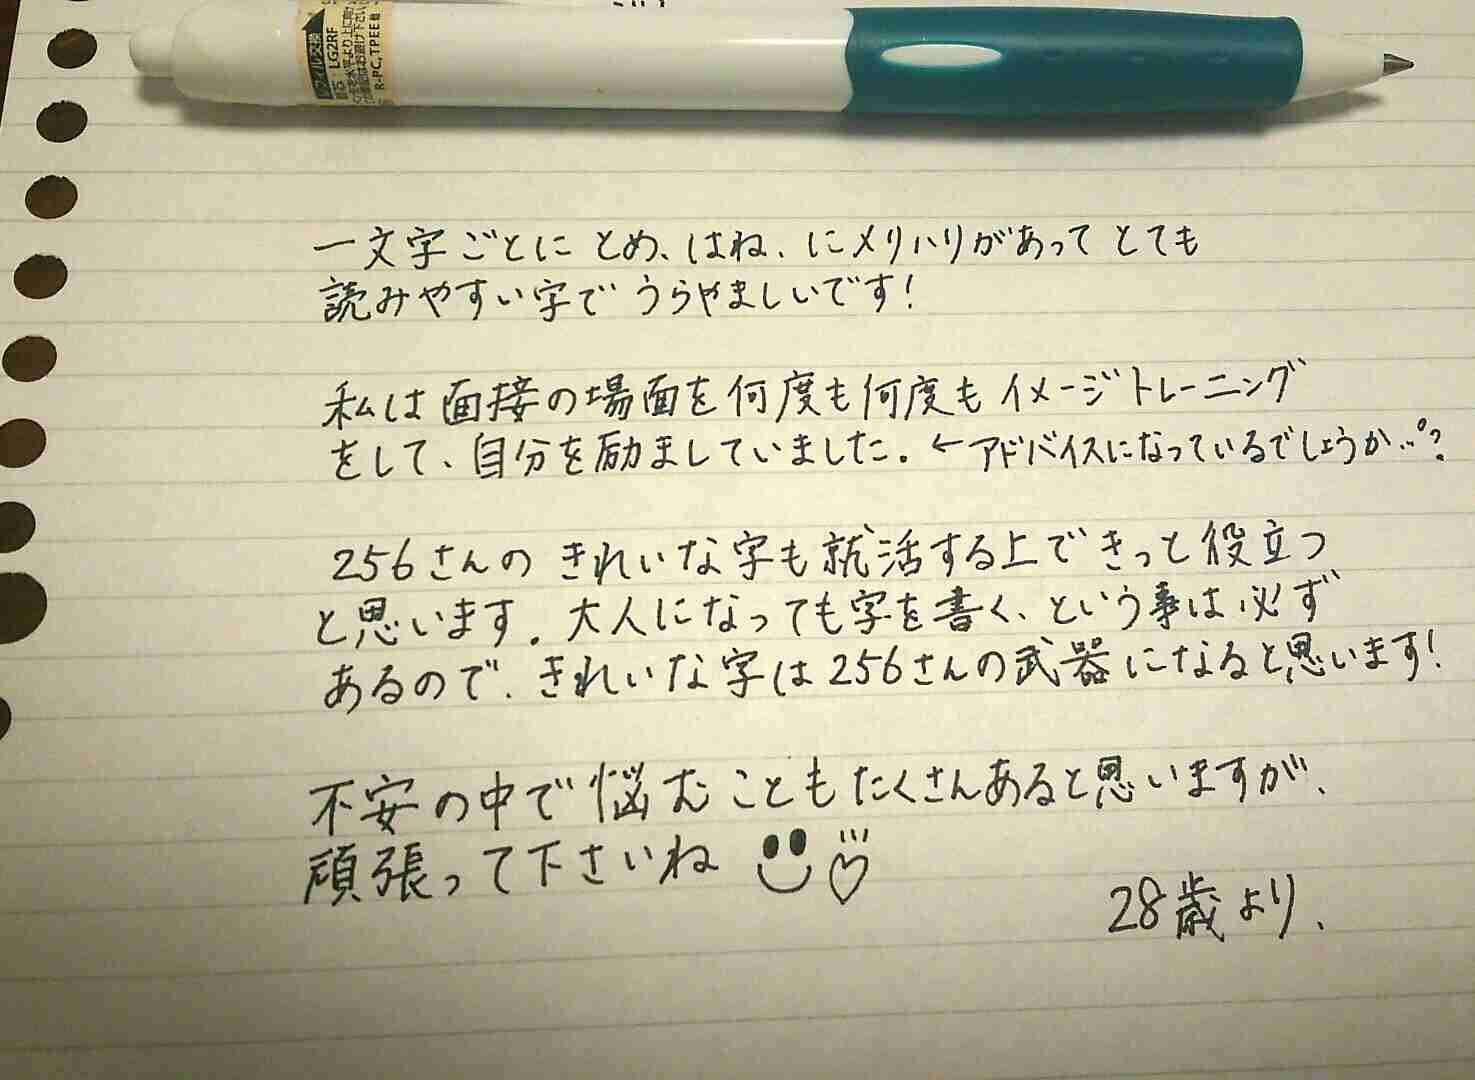 リフィル交換
品名：LG2RF
R-PC,TPEE
一文字ごとに とめ、はね、にメリハリがあって とても
読みやすい字で うらやましいです！
私は 面接の場面を何度も何度も イメージトレーニング
をして、自分を励ましていました。←アドバイスになっているでしょうか…°？
256さんの きれいな字も就活する上できっと役立つ
と思います。大人になっても字を書く、という事は必ず
あるので、きれいな字は256さんの武器になると思います！
不安の中で悩むこともたくさんあると思いますが、
頑張って下さいね
28歳より、